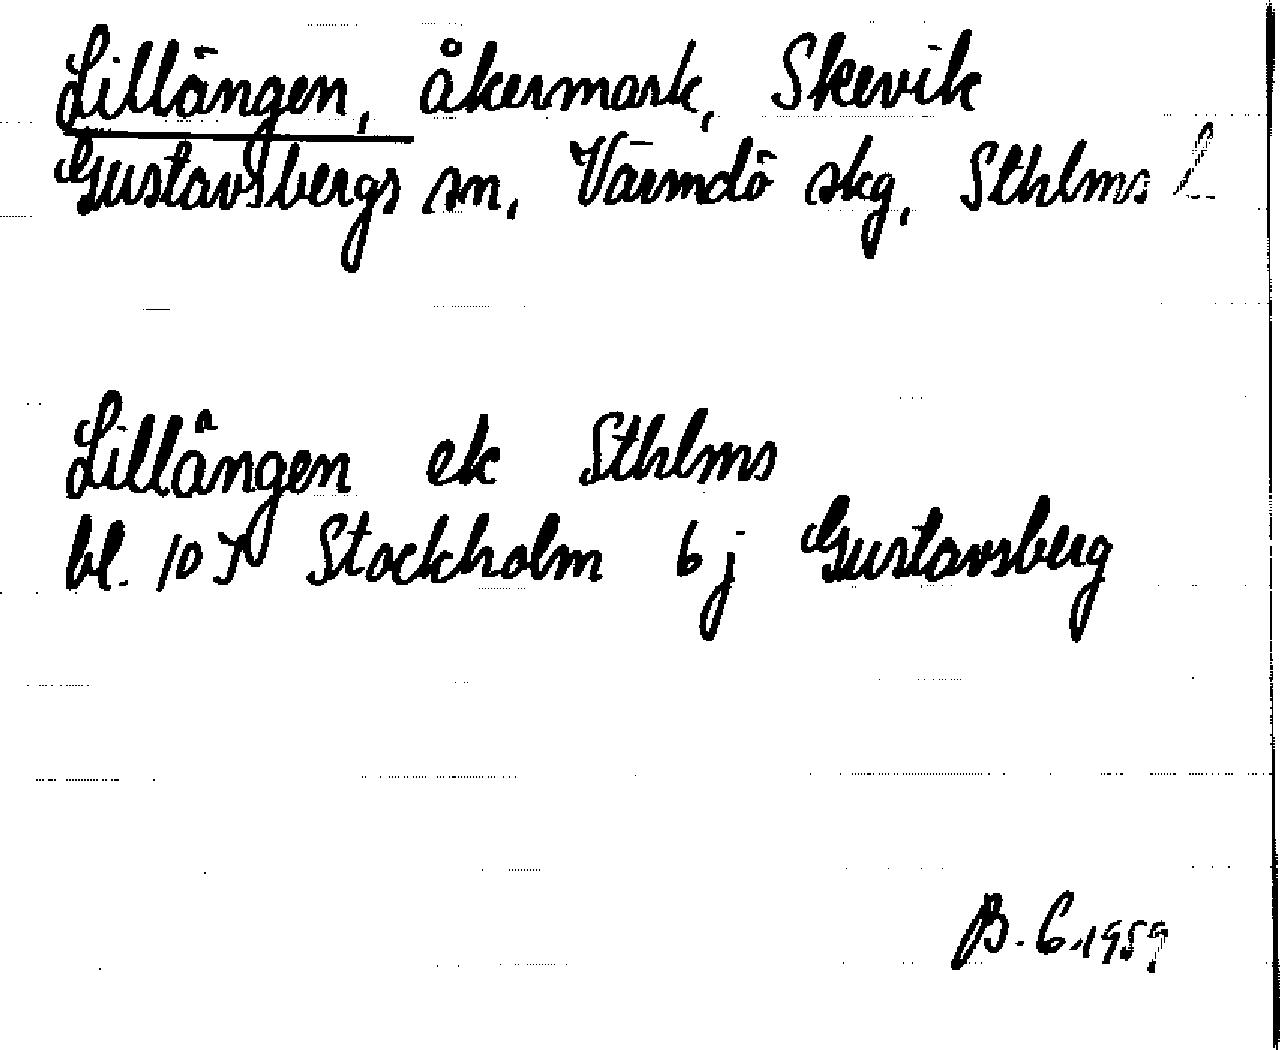 Lillängen, åkermark, Skevik
Gustavsbergs sn, Värmdö skg, Sthlms l
Lillängen ek Sthlms
bl. 107 Stockholm 6j Gustavsberg
B. G. 1959